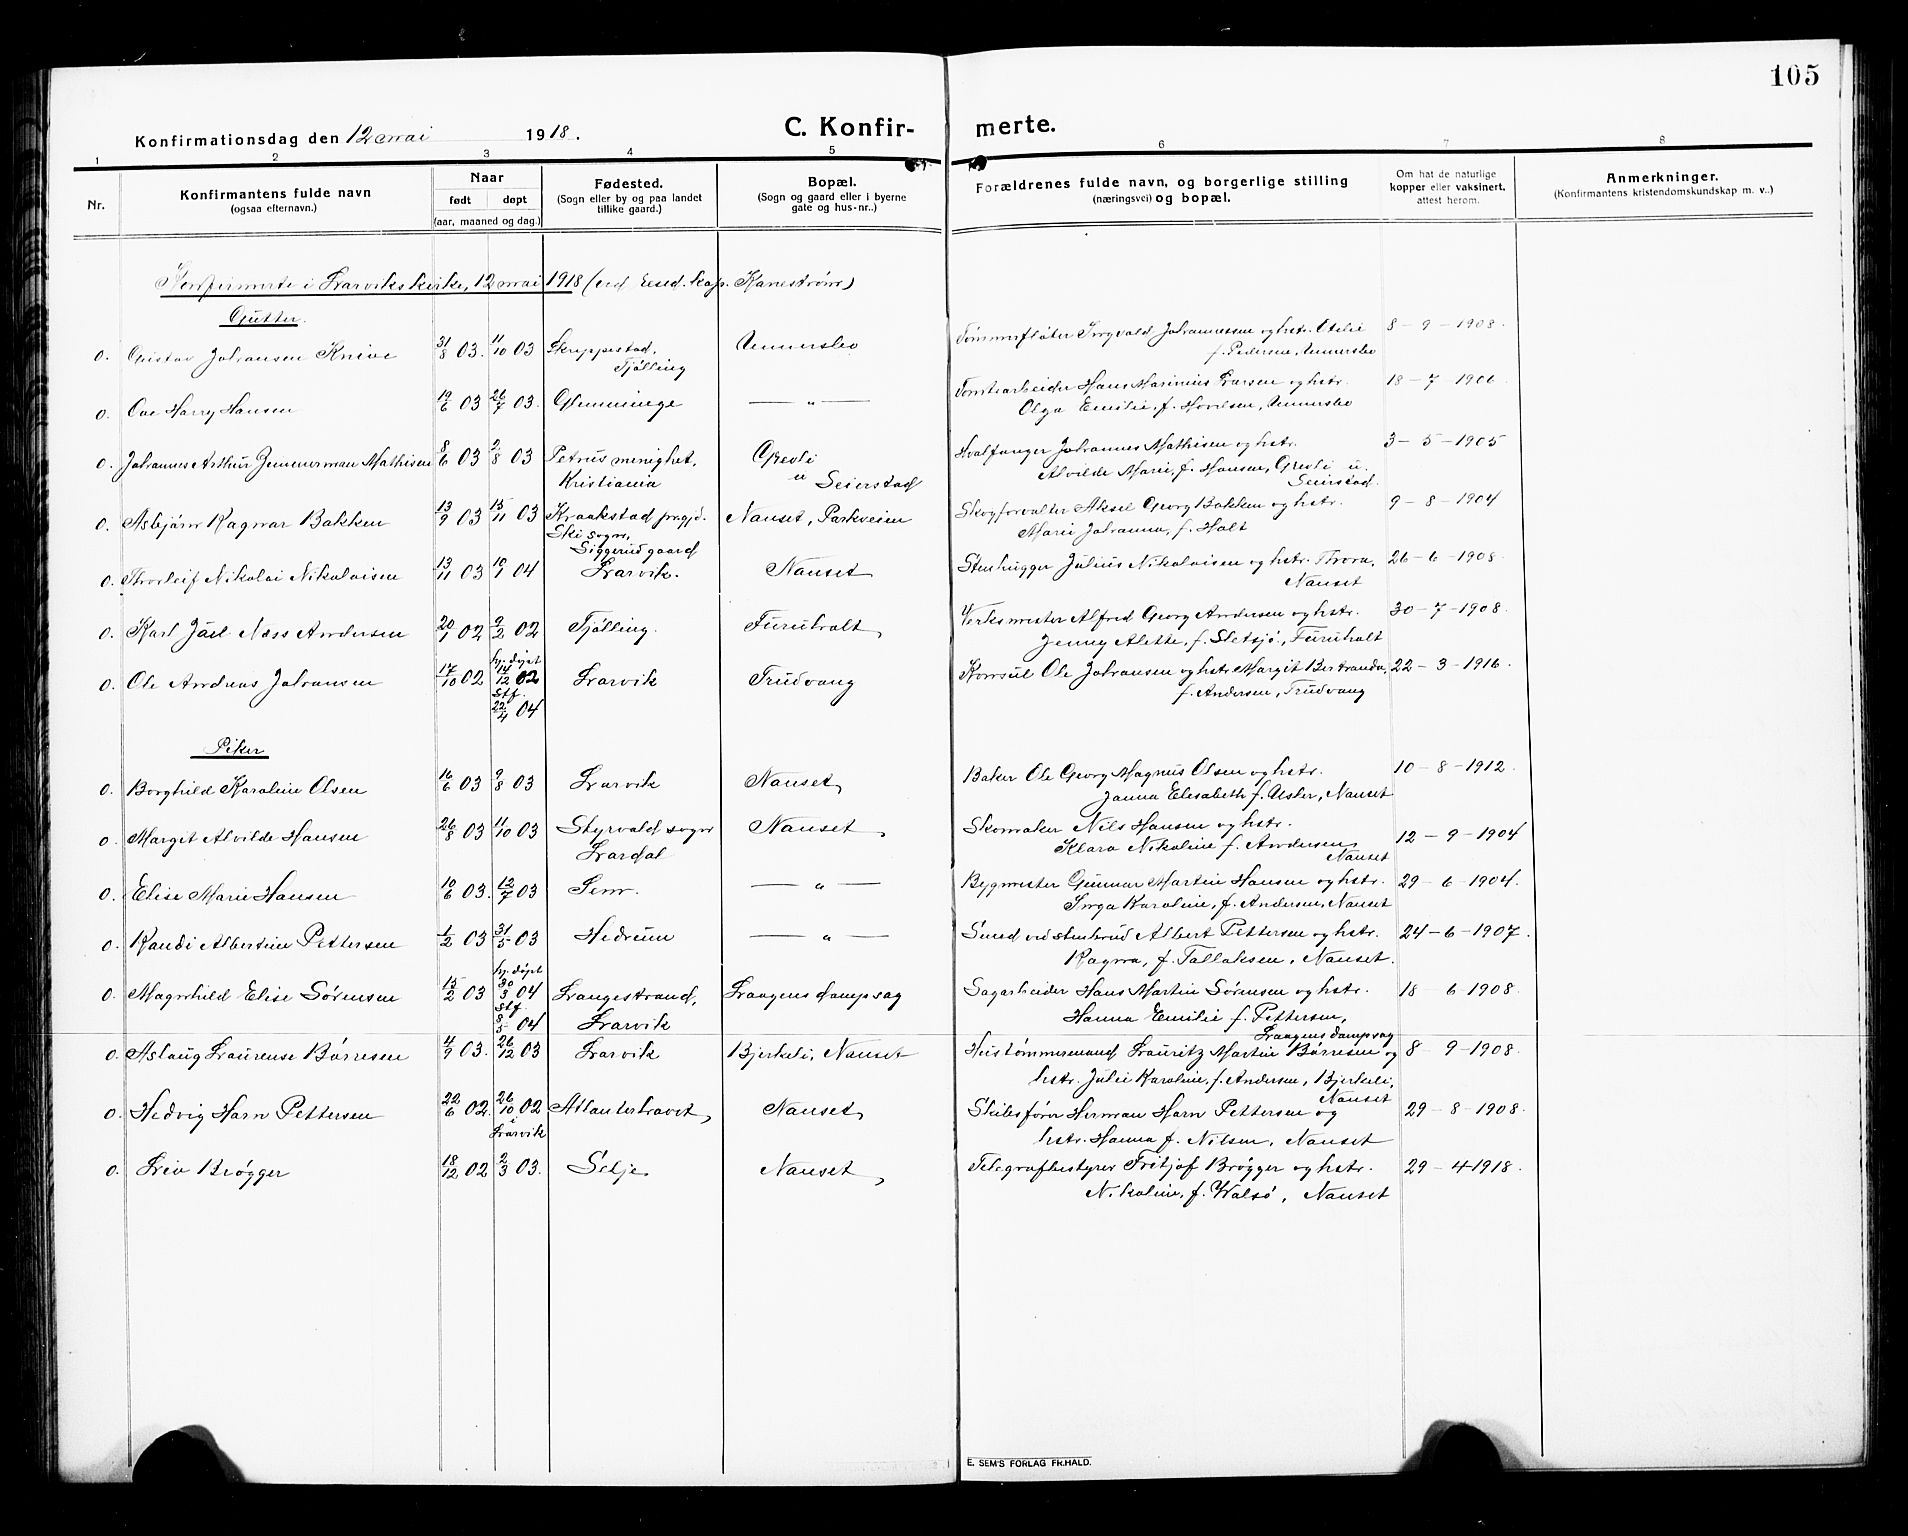 105
Konfirmationsdag den 12 mai 1918.
C. Konfir-
merte.
1 2 3 4 5 6 7 8
Nr.
Konfirmantens fulde navn
(ogsaa efternavn.)
Naar
født døpt
(aar, maaned og dag.)
Fødested.
(Sogn eller by og paa landet
tillike gaard.)
Bopæl.
(Sogn og gaard eller i byerne
gate og hus-nr..)
Forældrenes fulde navn, og borgerlige stilling
(næringsvei) og bopæl.
Om hat de naturlige
kopper eller vaksinert.
attest herom.
Anmerkninger.
(Konfirmantens kristendomskundskap m. v..)
Konfirmerte i Larviks kirke, 12 mai 1918 (ved resed. kap. Kanestrøm)
Gutter.
0. Gustav Johansen Knive 31/8 03. 11/10 03 Skreppestad, Tjølling Unnersbo Tømmerfløter Ingvald Johannessen og hstr. Otelie 8-9-1908.
f. Pedersen, Unnersbo
0. Ove Harry Hansen 19/6 03 26/7 03. Glemminge — " — Tomtearbeider Hans Marinius Larsen og hstr. 18-7-1906
Olga Emilie, f. Hovelsen, Unnersbo
0. Johannes Arthur Zimmerman Mathisen 8/6 03 2/8 03 Petrus menighet, Grevli Hvalfanger Johannes Mathisen og hstr. 3-5-1905
Kristiania u Seierstad Alvilde Marie, f. Hansen, Grevli u.
Seierstad.
0. Asbjørn Ragnar Bakken 13/9 03 15/11 03 Kraakstad prgjd. Nanset, Parkveien Skogforvalter Aksel Georg Bakken og hstr. 9-8-1904
Ski sogn, Marie Johanna, f. Holt
Siggerud gaard
0. Thorleif Nikolai Nikolaisen 13/11 03 10/1 04 Larvik. Nanset Stenhugger Julius Nikolaisen og hstr. Thora, 26-6-1908
Nanset
0. Karl Joël Næss Andersen 20/1 02 9/2 02 Tjølling. Furuholt Verksmester Alfred Georg Andersen og hstr. 30-7-1908.
Jenny Alette, f. Sletsjø, Furuholt
0. Ole Andreas Johansen 17/10 02 hj. døpt 14/12 02 Larvik Trudvang Konsul Ole Johansen og hstr. Margit Bertranda, 22-3-1916.
Stf. 22/4 04 f. Andersen, Trudvang
Piker
0. Borghild Karoline Olsen 16/6 03 9/8 03 Larvik Nanset Baker Ole Georg Magnus Olsen og hstr. 10-8-1912.
Janna Elisabeth f. Asler, Nanset
0. Margit Alvilde Hansen 26/8 03 11/10 03 Styrvold sogn Nanset Skomaker Nils Hansen og hstr. 12-9-1904
Lardal Klara Nikoline f. Andersen
Nanset
0. Elise Marie Hansen 10/6 03. 12/7 03 Sem. — " — Bygmester Gunnar Martin Hansen og hstr. 29-6-1904.
Inga Karoline, f. Andersen, Nanset
0. Randi Albertine Pettersen 1/2 03 31/5 03 Hedrum — " — Smed ved stenbrud Albert Pettersen og hstr. 24-6-1907.
Ragna, f. Tallaksen, Nanset.
0. Magnhild Elise Sørensen 15/2 03 hj. døpt 30/3 04 Langestrand, Laagens dampsag Sagarbeider Hans Martin Sørensen og hstr. 18-6-1908.
Stf. 8/5 04 Larvik Hanna Emilie f. Pettersen,
Laagens dampsag
0. Aslaug Laurense Børresen 4/9 03. 26/12 03 Larvik Bjerkeli, Nanset Hustømmermand Lauritz Martin Børresen og 8-9-1908.
hstr. Julie Karoline, f. Andersen, Bjerkeli,
Nanset
0. Hedvig Horn Pettersen 22/6 02. 26/10 02 Atlanterhavet, Nanset Skibsfører Herman Horn Pettersen og 29-8-1908.
i Larvik hstr. Hanna f. Nilsen, Nanset
0. Liv Brøgger 18/12 02 2/3 03. Selje Nanset Telegrafbestyrer Fritjof Brøgger og hstr. 29-4-1918.
Nikoline, f. Walsø, Nanset
E. SEM'S FORLAG FR.HALD.